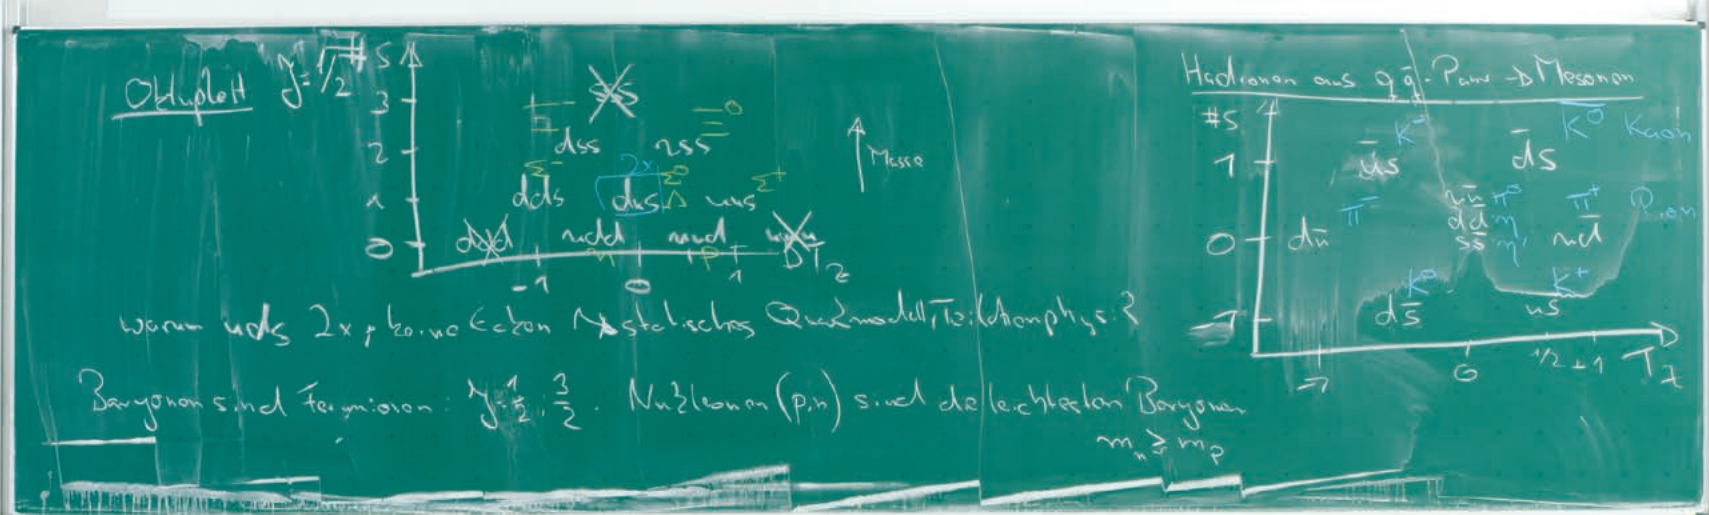 Oktuplett J=1/2 #S
3 sss
Ξ⁻ Ξ⁰
2 dss uss
Σ⁻ 2x Σ⁰ Σ⁺
1 dds dus Λ uus
0 ddd udd uud uuu
n p
-1 0 1 Tz
Masse
warum uds 2x, keine Ecken → statisches Quarkmodell, Teilchenphysik
Baryonen sind Fermionen: J=1/2, 3/2. Nukleonen (p,n) sind die leichtesten Baryonen
mₙ ≳ mₚ
Hadronen aus q q̄-Paar → Mesonen
#S K⁻ K̄⁰ Kaon
1 ūs d̄s
π⁻ uū π⁰ π⁺ Pion
dd̄ η
0 dū ss̄ η' ud̄
K⁰ K⁺
-1 ds̄ us̄
-1 0 1/2 +1 Tz